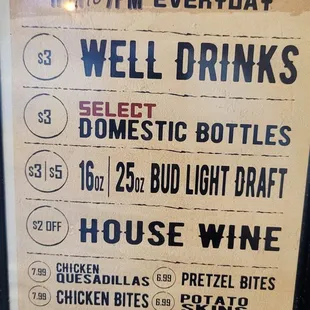 7PM EVERYDAY
$3 WELL DRINKS
$3 SELECT
DOMESTIC BOTTLES
$3|$5 16OZ|25OZ BUD LIGHT DRAFT
$2 OFF HOUSE WINE
7.99 CHICKEN QUESADILLAS
6.99 PRETZEL BITES
7.99 CHICKEN BITES
6.99 POTATO SKINS